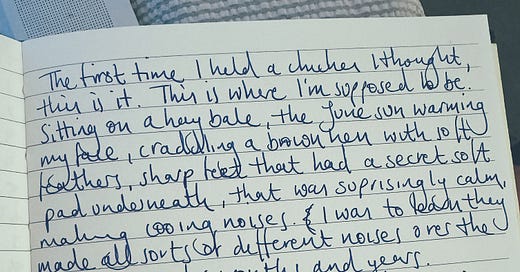 The first time I held a chicken I thought,
this is it. This is where I'm supposed to be.
Sitting on a hay bale, the June sun warming
my face, craddling a brown hen with soft
feathers, sharp feet that had a secret soft
pad underneath, that was suprisingly calm,
making cooing noises. & I was to learn they
made all sorts of different noises over the
months and years.